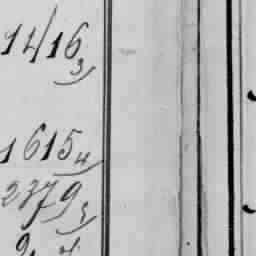 1416 3/
1615 4/
2379 3/